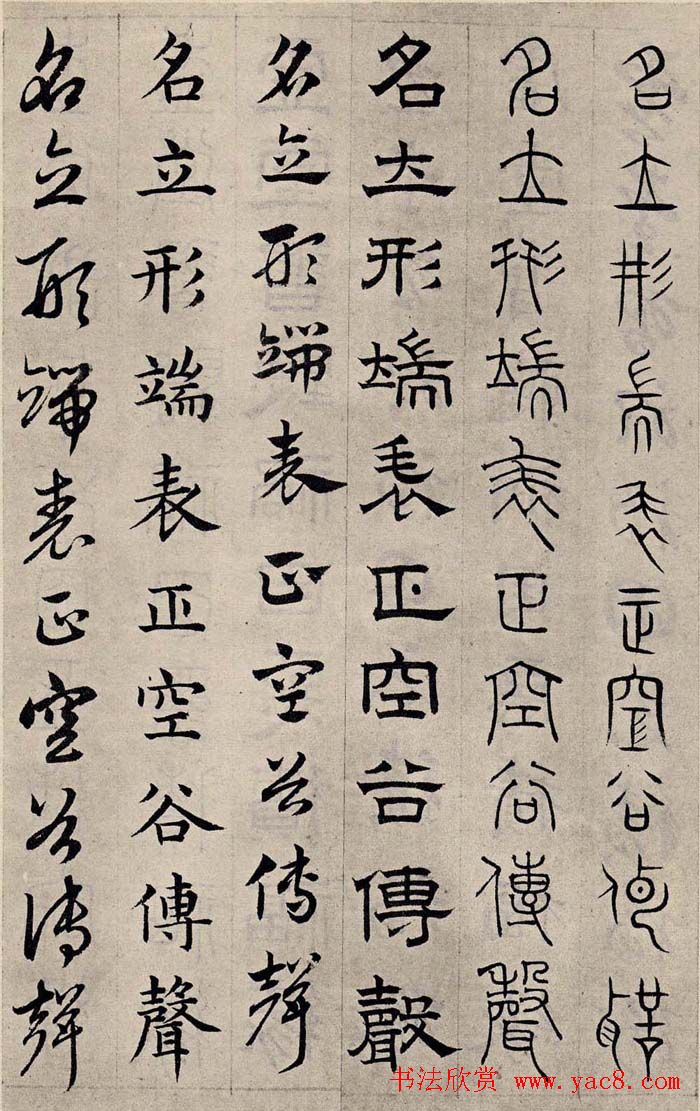 名立形端表正空谷傳聲
名立形端表正空谷傳聲
名立形端表正空谷傳聲
名立形端表正空谷傳聲
名立形端表正空谷傳聲
名立形端表正空谷傳聲
书法欣赏 www.yac8.com